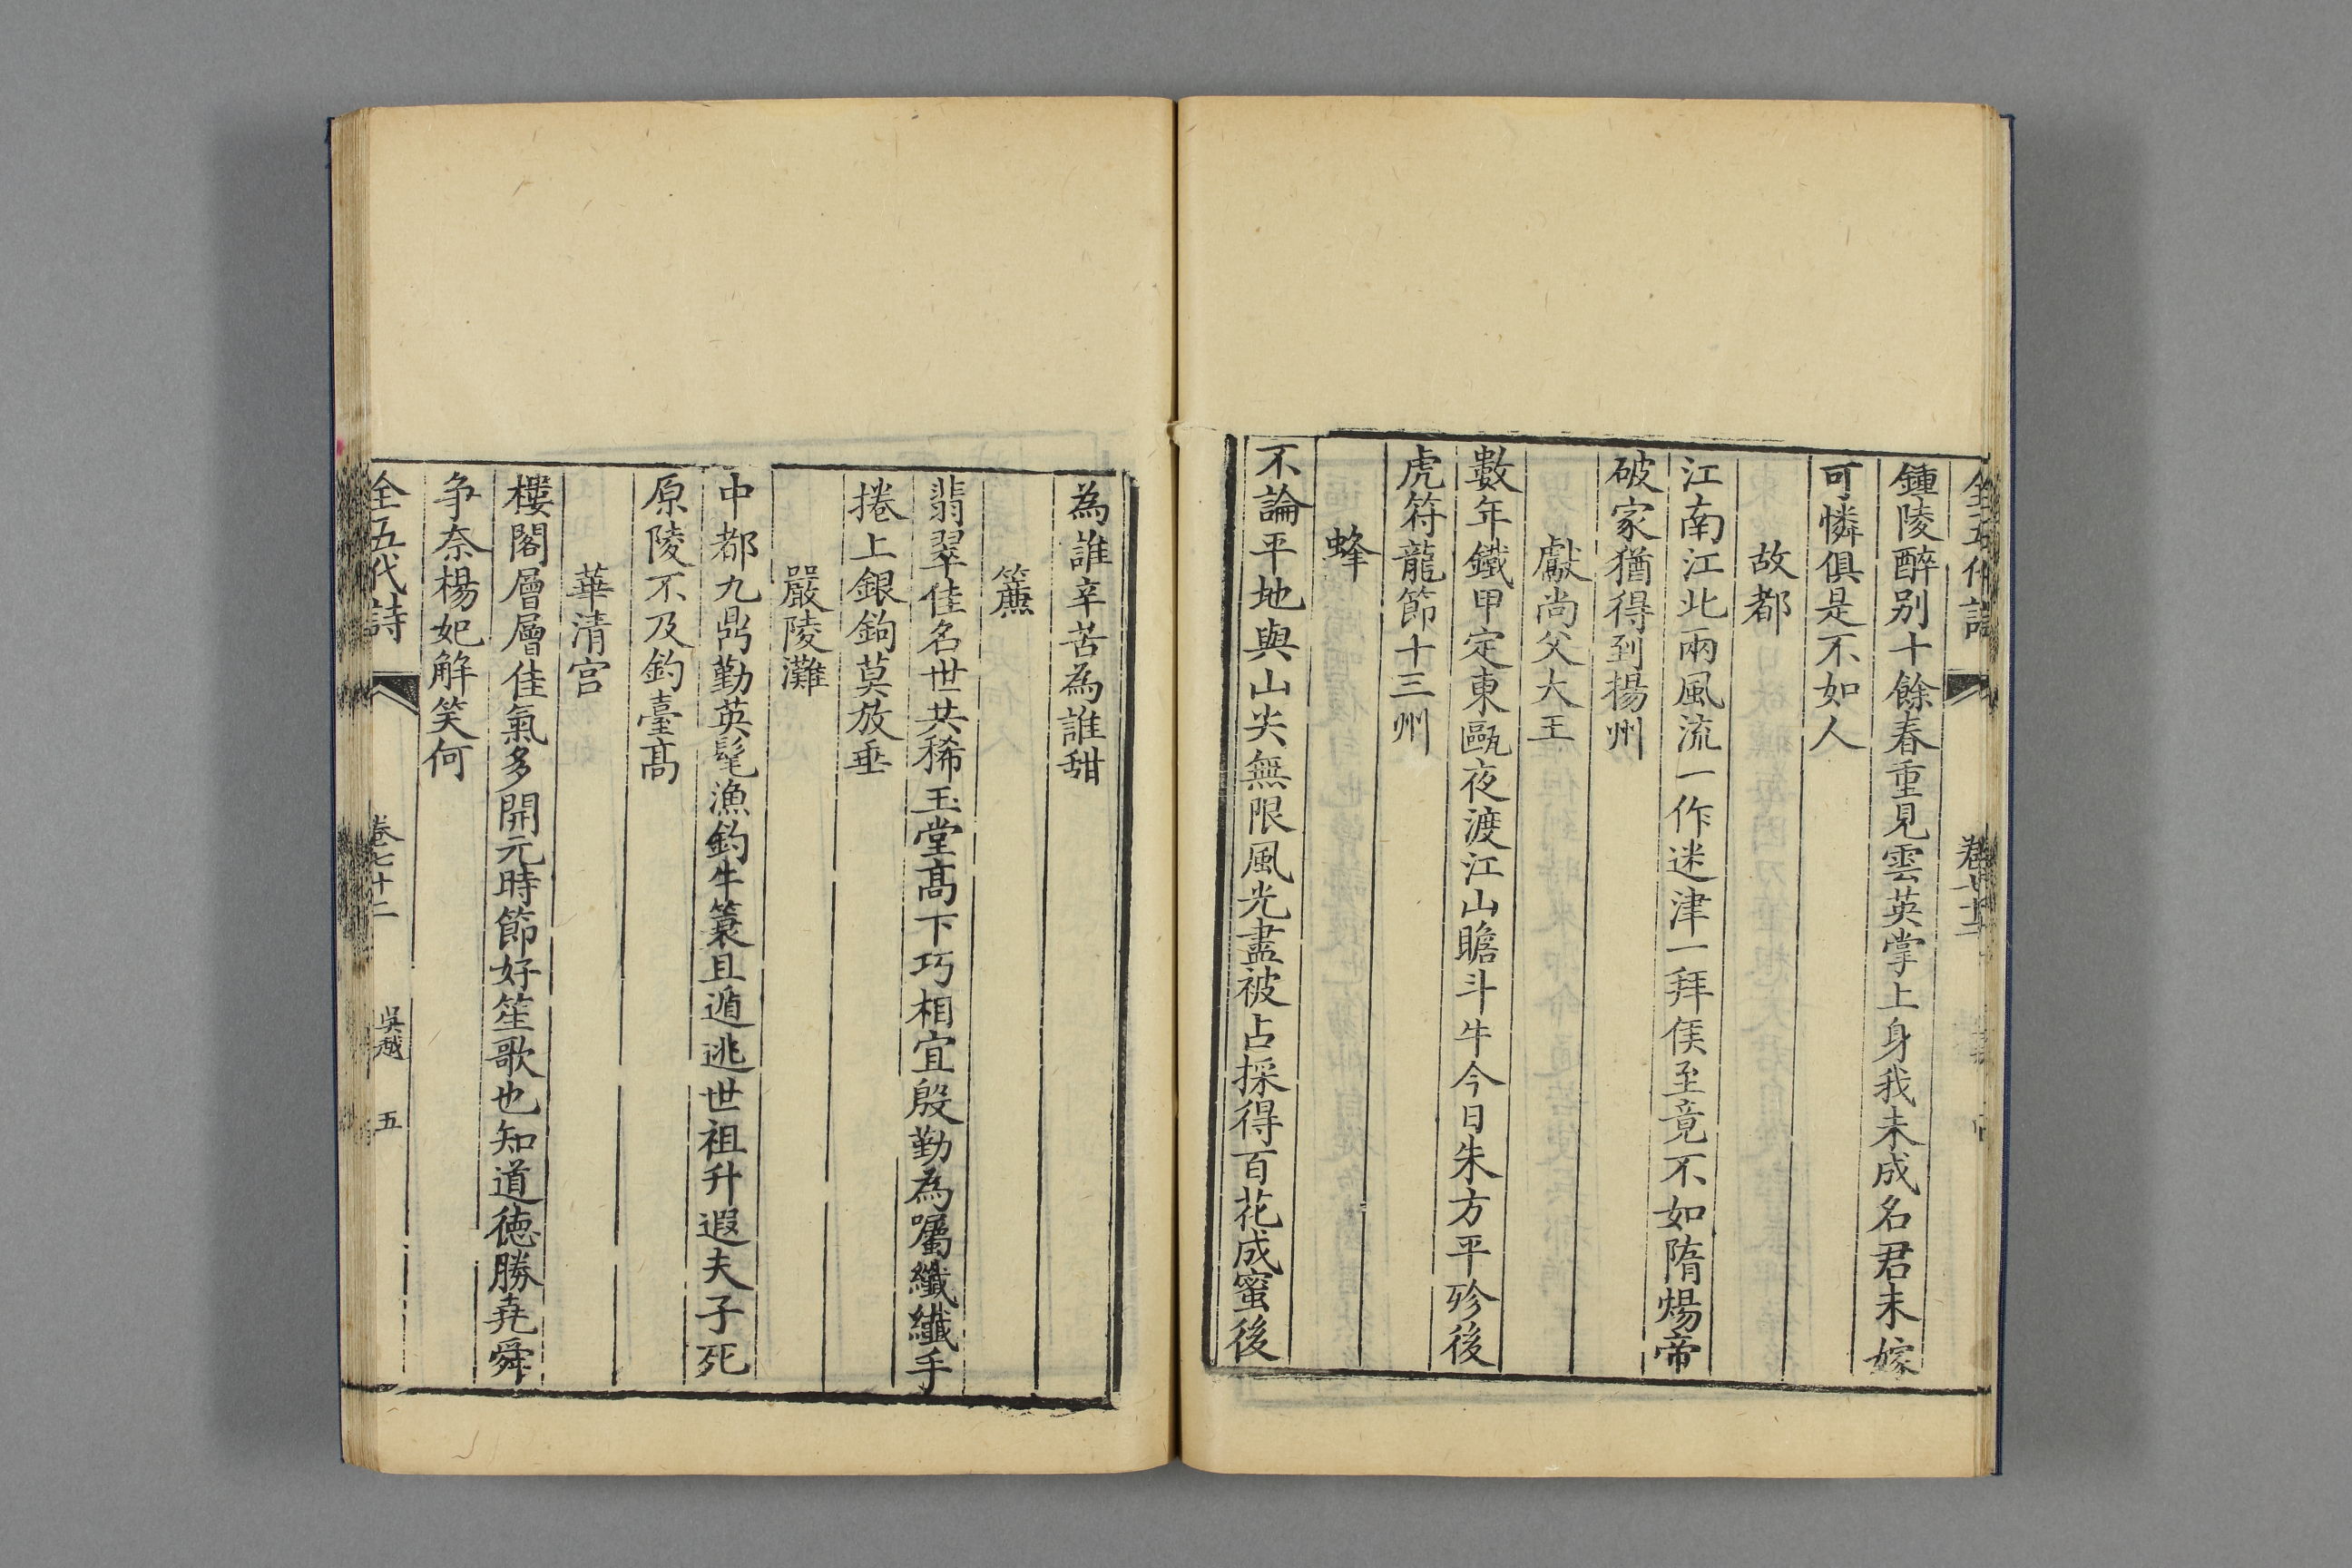 全五代詩 卷七十二
鍾陵醉别十餘春重見雲英掌上身我未成名君未嫁
可憐俱是不如人
故都
江南江北兩風流一作迷津一拜侯至竟不如隋煬帝
破家猶得到揚州
獻尚父大王
數年鐵甲定東甌夜渡江山瞻斗牛今日朱方平殄後
虎符龍節十三州
蜂
不論平地與山尖無限風光盡被占採得百花成蜜後
為誰辛苦為誰甜
簾
翡翠佳名世共稀玉堂髙下巧相宜殷勤為囑纖纖手
捲上銀鉤莫放垂
嚴陵灘
中都九鼎勤英髦漁釣牛蓑且遁逃世祖升遐夫子死
原陵不及釣臺髙
華清宫
樓閣層層佳氣多開元時節好笙歌也知道徳勝堯舜
争奈楊妃解笑何
全五代詩 卷七十二 吳越 五